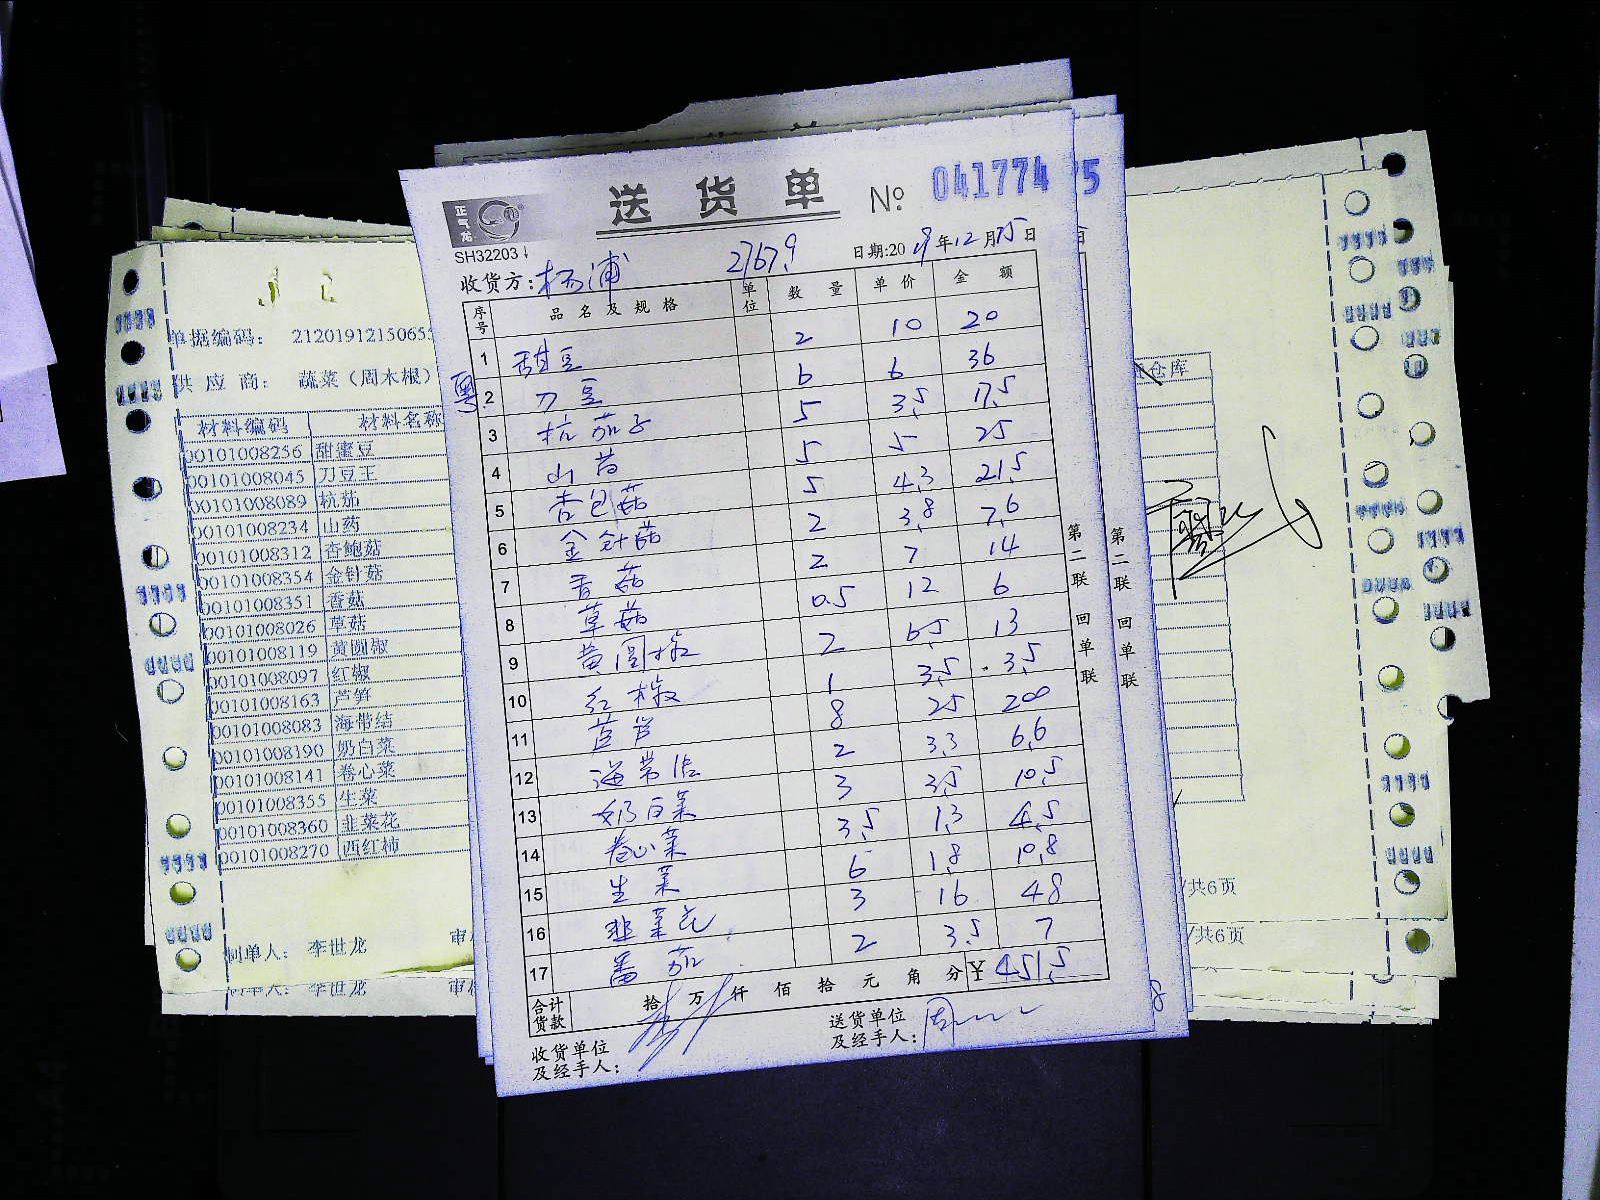 正气龙
送货单 № 041774
75
SH32203
收货方: 杨浦 27679 日期:2019年12月15日
日
序号 品名及规格 单位 数量 单价 金额
1 甜豆 2 10 20
粤.
2 刀豆 6 6 36
3 杭茄子 5 3.5 17.5
4 山药 5 5 25
5 杏包菇 5 4.3 21.5
6 金针菇 2 3.8 7.6
7 香菇 2 7 14
8 草菇 0.5 12 6
9 黄圆椒 2 6.5 13
10 红椒 1 3.5 3.5
11 芦笋 8 25 200
12 海带结 2 3.3 6.6
13 奶白菜 3 3.5 10.5
14 卷心菜 3.5 1.3 4.5
15 生菜 6 1.8 10.8
16 韭菜花 3 16 48
17 番茄 2 3.5 7
合计货款 拾 万 仟 佰 拾 元 角 分 ¥ 451.5
收货单位及经手人:
送货单位及经手人: 周
第二联 回单联
第二联 回单联
单据编码: 2120191215065
供应商: 蔬菜(周木根)
材料编码 材料名称
00101008256 甜蜜豆
00101008045 刀豆王
00101008089 杭茄
00101008234 山药
00101008312 杏鲍菇
00101008354 金针菇
00101008351 香菇
00101008026 草菇
00101008119 黄圆椒
00101008097 红椒
00101008163 芦笋
00101008083 海带结
00101008190 奶白菜
00101008141 卷心菜
00101008355 生菜
00101008360 韭菜花
00101008270 西红柿
制单人: 李世龙 审
制单人: 李世龙 审
仓库
/共6页
/共6页
8